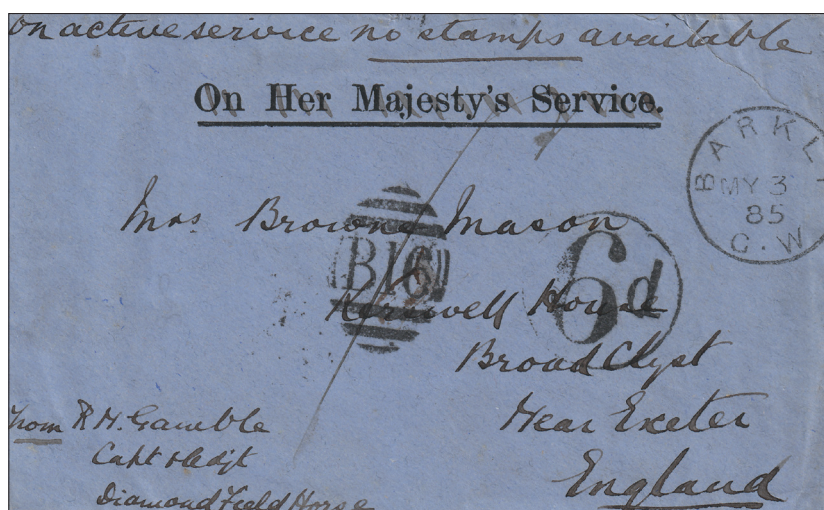 On active service no stamps available
On Her Majesty's Service.
BARKLY
MY 3
85
G.W
Mrs Browne Mason
B16
6d
Kerswell House
Broad Clyst
Near Exeter
England
From R H. Gamble
Capt & Adjt
Diamond Field Horse